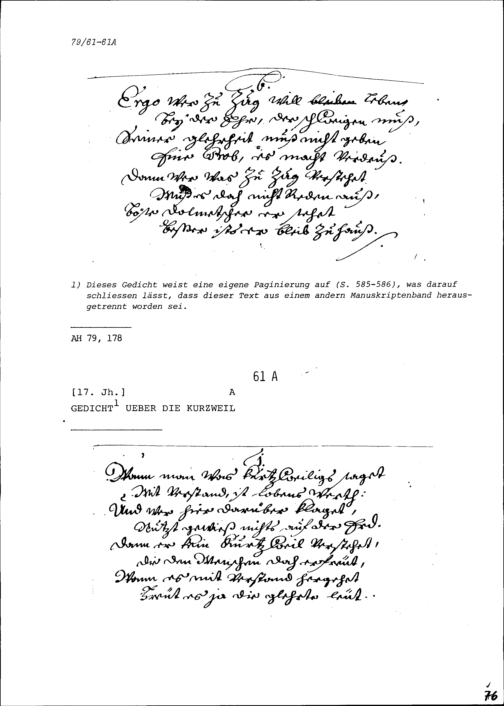 79/61-61A
6.
Ergo Wer Zu Zug will bleiben Lebens
bey der Ehr, der schweigen muß,
Seiner glehrheit muß nicht geben
Eine Prob, es macht Verdruß.
Dann Wer Was Zu Zug Verstehet
Muß es doch nicht Reden auß,
böse Dolmetscher er
besser ists er bleib Zu Hauß.
1) Dieses Gedicht weist eine eigene Paginierung auf (S. 585-586), was darauf
schliessen lässt, dass dieser Text aus einem andern Manuskriptenband heraus-
getrennt worden sei.
AH 79, 178
61 A
[17. Jh.] A
GEDICHT1 UEBER DIE KURZWEIL
1.
Wann man Was kurtzweiligs saget
Mit Verstand, ist lobens Werth:
Und Wer hier darüber klaget,
Nützt gewiß nichts auf der Erd.
dann er kein kurtzweil Verstehet,
die den Menschen doch erfreut,
Wann es mit Verstand hergehet
Freut es ja die glehrte leut.
76